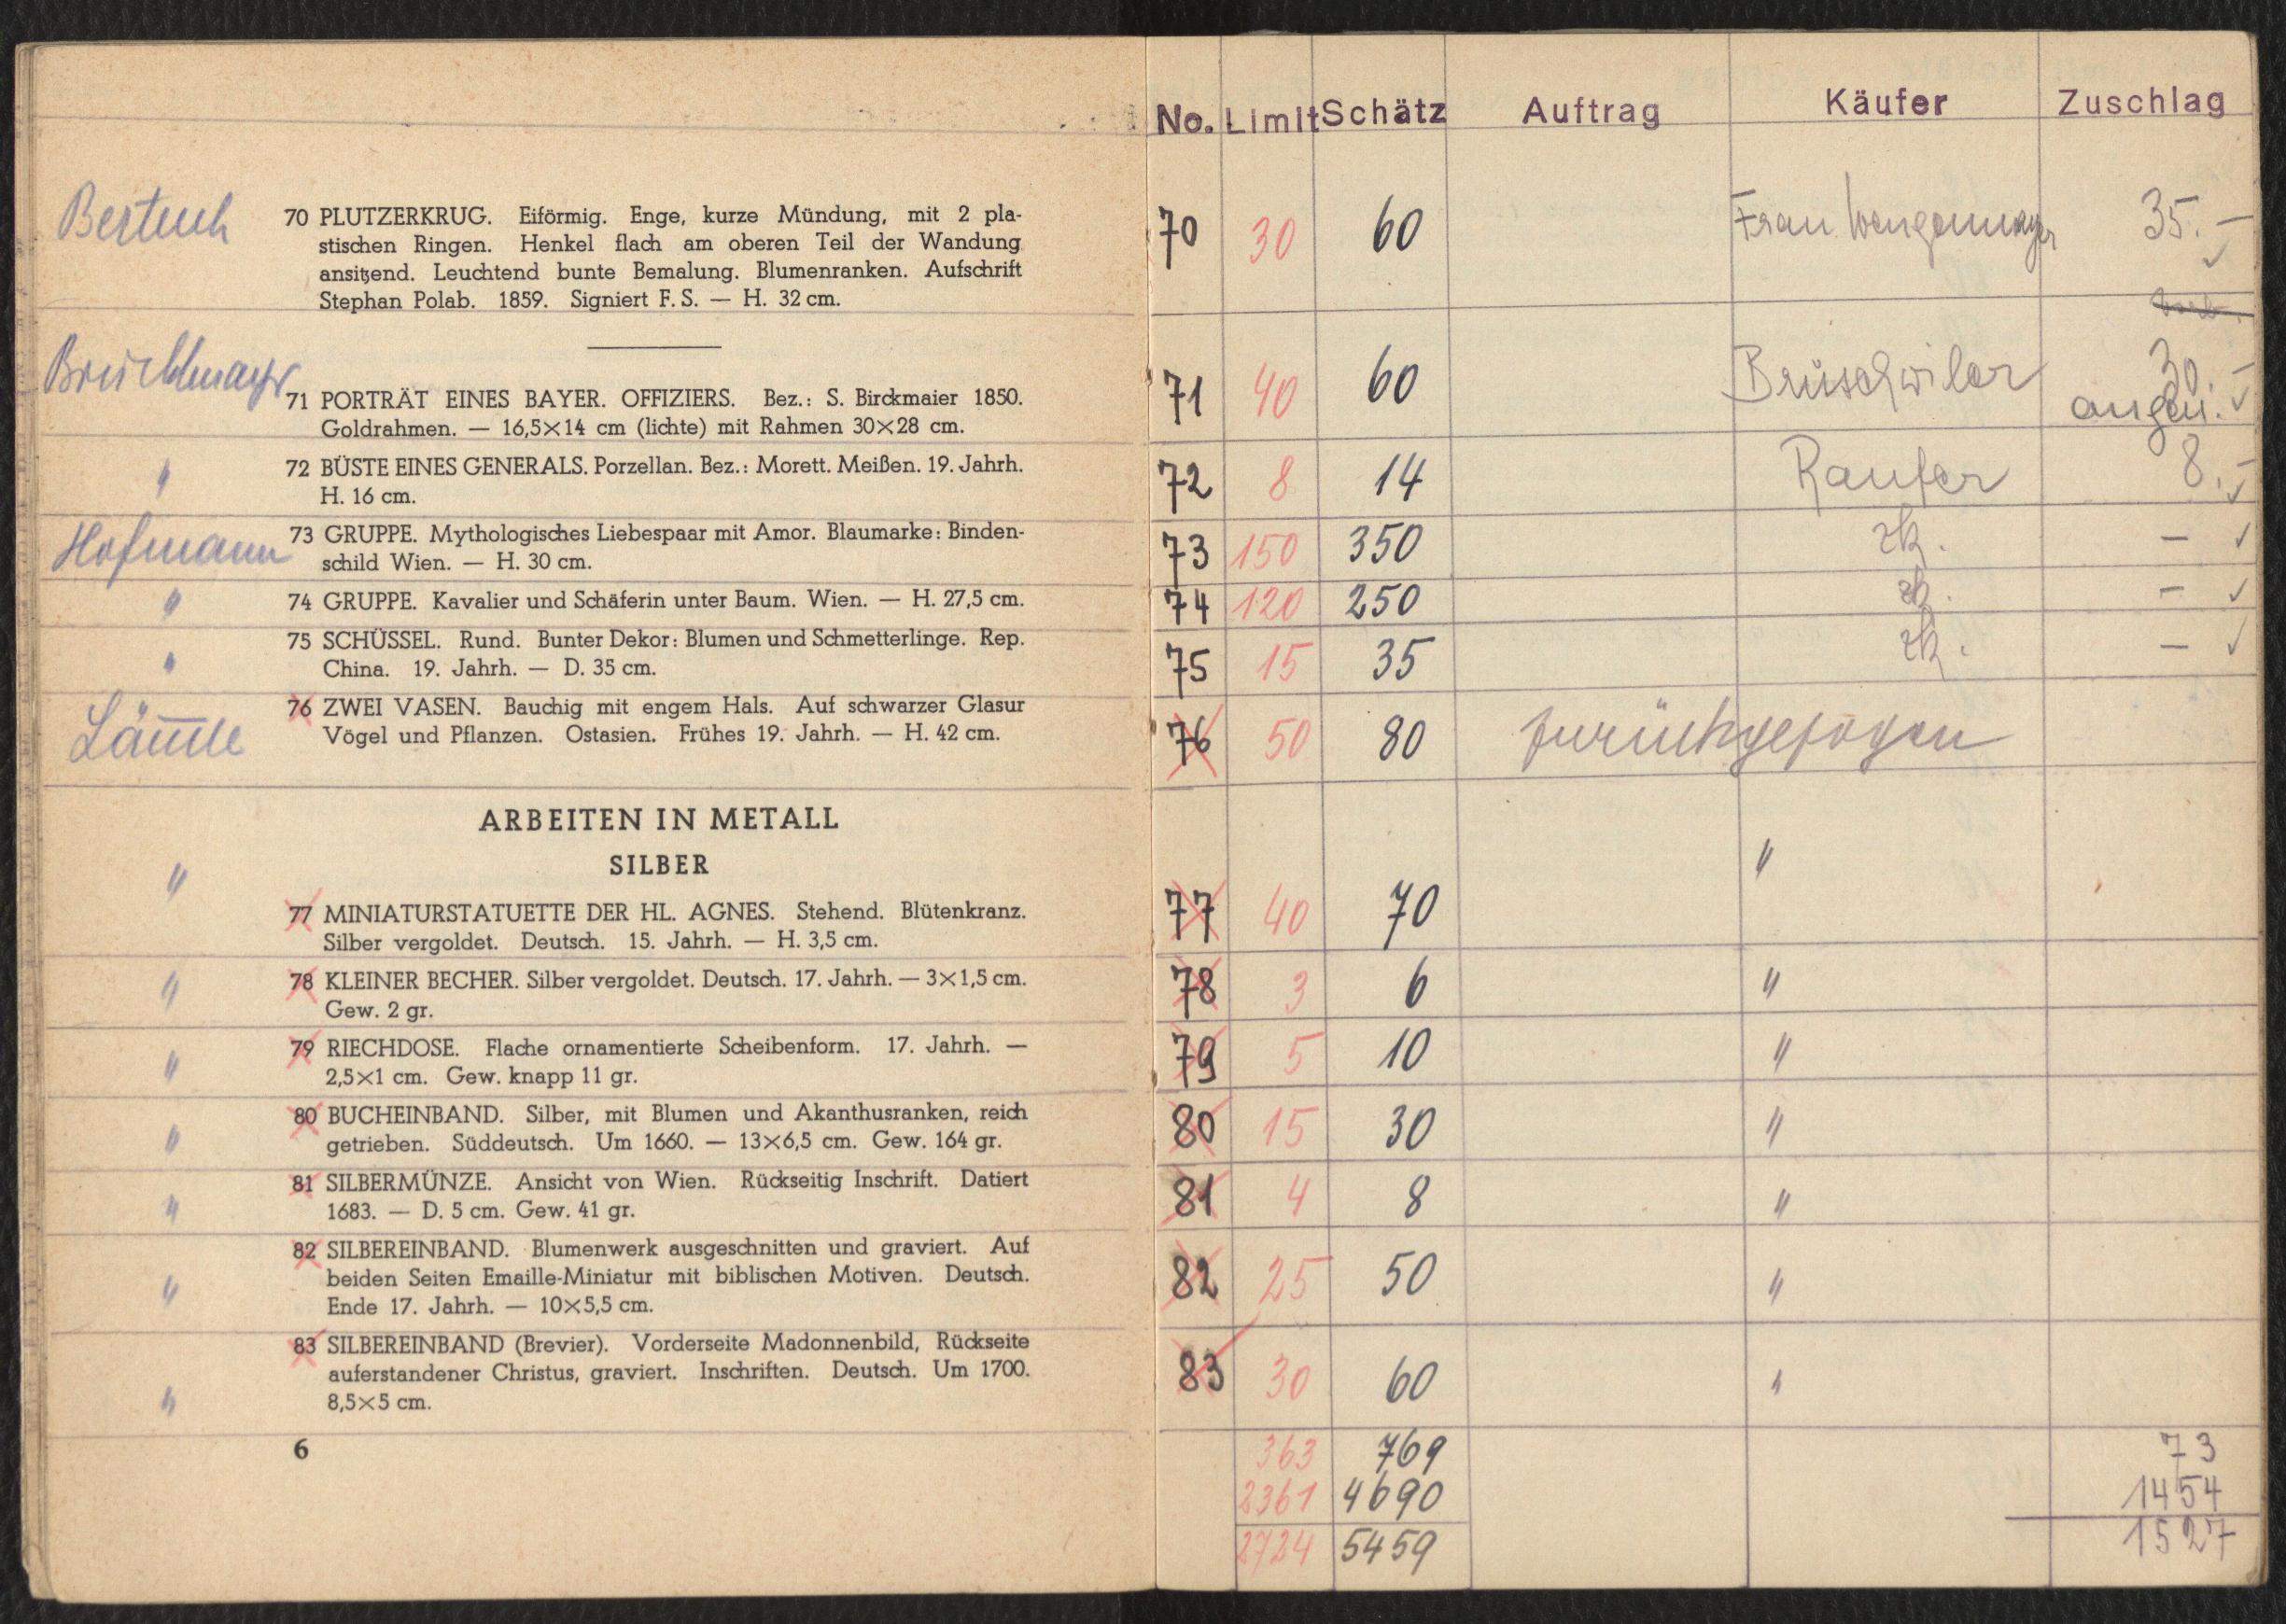 Bertuch
70 PLUTZERKRUG. Eiförmig. Enge, kurze Mündung, mit 2 pla-
stischen Ringen. Henkel flach am oberen Teil der Wandung
ansitzend. Leuchtend bunte Bemalung. Blumenranken. Aufschrift
Stephan Polab. 1859. Signiert F. S. — H. 32 cm.
71 PORTRÄT EINES BAYER. OFFIZIERS. Bez.: S. Birckmaier 1850.
Goldrahmen. — 16,5×14 cm (lichte) mit Rahmen 30×28 cm.
" 72 BÜSTE EINES GENERALS. Porzellan. Bez.: Morett. Meißen. 19. Jahrh.
H. 16 cm.
Hofmann 73 GRUPPE. Mythologisches Liebespaar mit Amor. Blaumarke: Binden-
schild Wien. — H. 30 cm.
" 74 GRUPPE. Kavalier und Schäferin unter Baum. Wien. — H. 27,5 cm.
" 75 SCHÜSSEL. Rund. Bunter Dekor: Blumen und Schmetterlinge. Rep.
China. 19. Jahrh. — D. 35 cm.
Lämle 76 ZWEI VASEN. Bauchig mit engem Hals. Auf schwarzer Glasur
Vögel und Pflanzen. Ostasien. Frühes 19. Jahrh. — H. 42 cm.
ARBEITEN IN METALL
SILBER
" 77 MINIATURSTATUETTE DER HL. AGNES. Stehend. Blütenkranz.
Silber vergoldet. Deutsch. 15. Jahrh. — H. 3,5 cm.
" 78 KLEINER BECHER. Silber vergoldet. Deutsch. 17. Jahrh. — 3×1,5 cm.
Gew. 2 gr.
" 79 RIECHDOSE. Flache ornamentierte Scheibenform. 17. Jahrh. —
2,5×1 cm. Gew. knapp 11 gr.
" 80 BUCHEINBAND. Silber, mit Blumen und Akanthusranken, reich
getrieben. Süddeutsch. Um 1660. — 13×6,5 cm. Gew. 164 gr.
" 81 SILBERMÜNZE. Ansicht von Wien. Rückseitig Inschrift. Datiert
1683. — D. 5 cm. Gew. 41 gr.
" 82 SILBEREINBAND. Blumenwerk ausgeschnitten und graviert. Auf
beiden Seiten Emaille-Miniatur mit biblischen Motiven. Deutsch.
Ende 17. Jahrh. — 10×5,5 cm.
" 83 SILBEREINBAND (Brevier). Vorderseite Madonnenbild, Rückseite
auferstandener Christus, graviert. Inschriften. Deutsch. Um 1700.
8,5×5 cm.
6
No. Limit Schätz Auftrag Käufer Zuschlag
70 30 60 Frau Wengenmayr 35.–
71 40 60 Brüschwiler 30.–
angen.
72 8 14 Raufer 8.–
73 150 350 zk. –
74 120 250 zk. –
75 15 35 zk. –
76 50 80 zurückgezogen
77 40 70 "
78 3 6 "
79 5 10 "
80 15 30 "
81 4 8 "
82 25 50 "
83 30 60 "
363 769 73
2361 4690 1454
2724 5459 1527